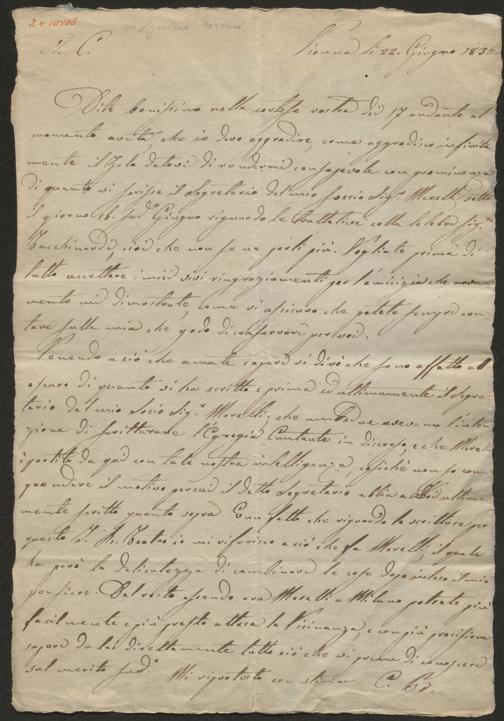 A. C.
Vienna li 22. Giugno 1836.
Dite benissimo nella cortese vostra del 17 andante al
momento avuta che io devo aggradire, come aggradisco infinita
mente il zelo datovi di rendermi consapevole con prominenza
di quanto vi scrisse il Segretario del mio Socio Sigr. Merelli, sotto
il giorno 16. sudo Giugno riguardo le trattative colla celebre Sigra.
Tacchinardi, cioè che non se ne parli più. Vogliate prima di
tutto accettare i miei vivi ringraziamenti per l'amicizia che nova
mente mi dimostrate, come vi assicuro che potete sempre con
tare sulla mia che godo di conservare per voi.
Venendo a ciò che amate sapere vi dirò che sono affatto al
oscuro di quanto vi ha scritto e prima ed ultimamente il Segre
tario del mio Socio Sigr. Merelli, che ambedue avevamo l'inten
zione di scritturare l'Egregia Cantante in discorso, e che Merelli
è partito da quà con tale nostra intelligenza, cosichè non so com
prendere il motivo percui il detto Segretario abbia ultima
mente scritto quanto sopra. È un fatto che riguardo le scritture per
questo I. R. Teatro io mi riferisco a ciò che fa Merelli, il quale
ha però la delicatezza di combinare le cose dopo inteso il mio
pensiere. Del resto essendo ora Merelli a Milano potrete più
facilmente e più presto attesa la vicinanza, e con più precisione
sapere da lui direttamente tutto ciò che vi preme di conoscere
sul merito sudo.
Mi riprotesto con stima C. B.